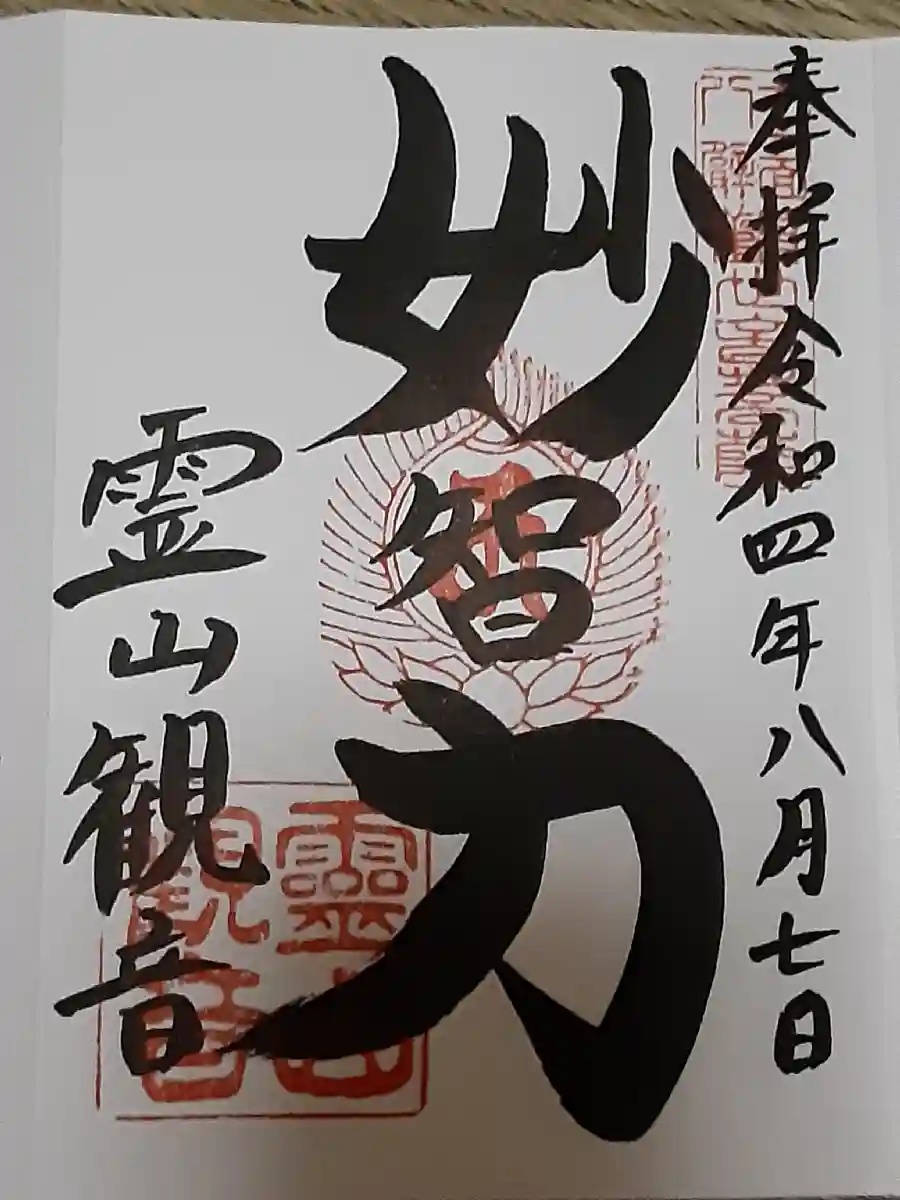 奉拝令和四年八月七日
妙智力
霊山観音
靈山
観音